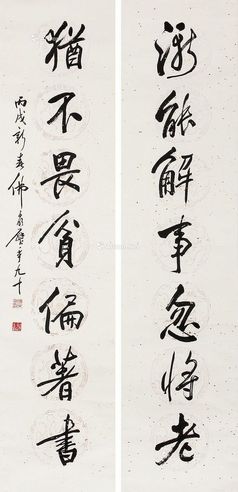 渐能解事忽将老
犹不畏贫偏著书
丙戌新春佛翁屡年九十